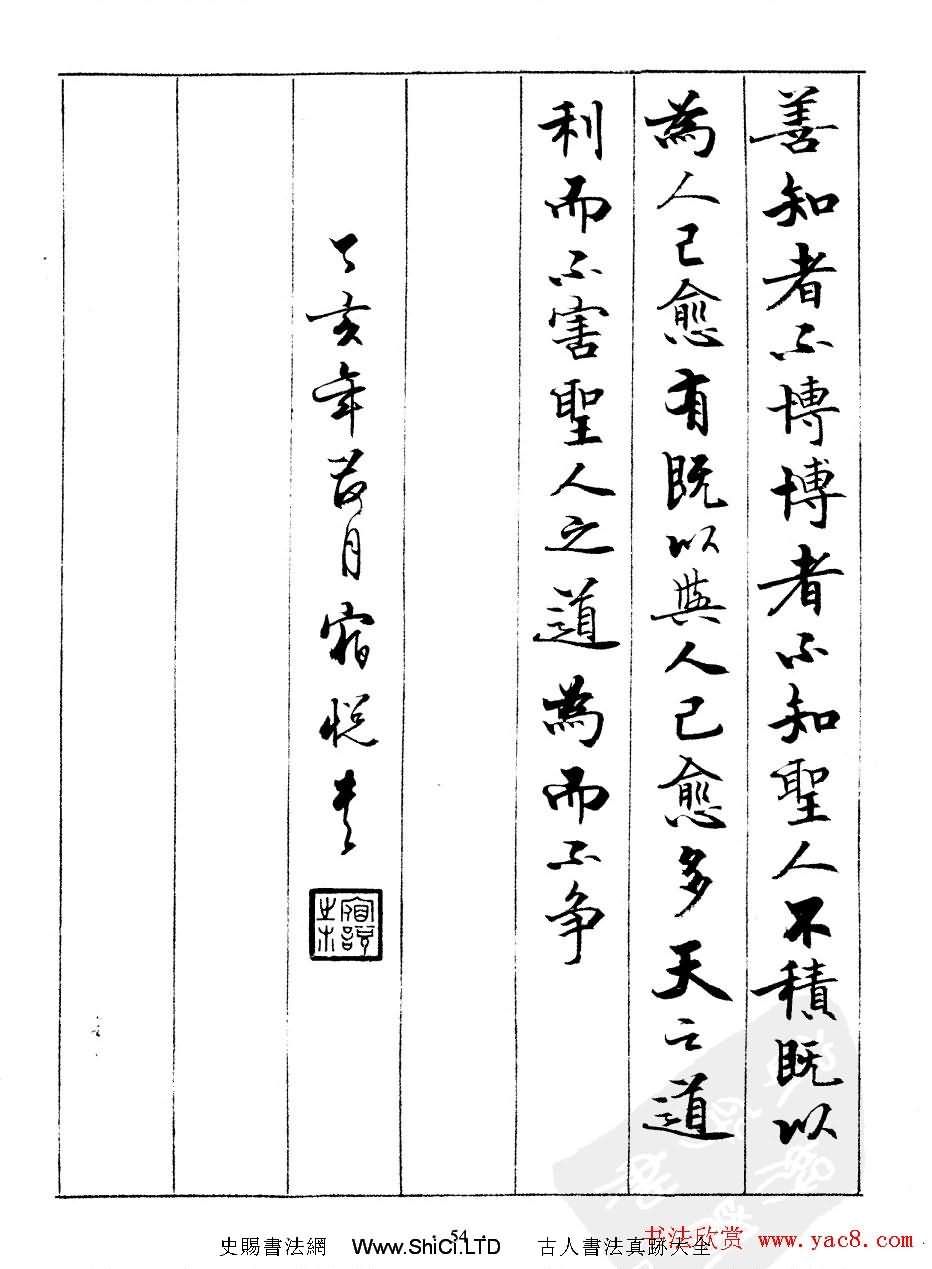 善知者不博博者不知聖人不積既以
為人己愈有既以與人己愈多天之道
利而不害聖人之道為而不争
丁亥年月宿悦書
54
史賜書法網 Www.ShiCi.LTD 古人書法真跡大全
书法欣赏 www.yac8.com